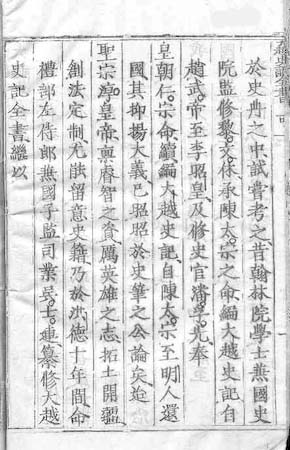 於史冊之中試嘗考之昔翰林院學士兼國史
院監修黎文休承陳太宗之命編大越史記自
趙武帝至李昭皇及修史官潘孚先奉
皇朝仁宗命續編大越史記自陳太宗至明人還
國其抑揚大義已昭昭於史筆之公論矣迨
聖宗淳皇帝稟睿智之資厲英雄之志拓土開疆
創法定制尤能留意史籍乃於洪德十年間命
禮部左侍郎兼國子監司業吳士連纂修大越
史記全書繼以